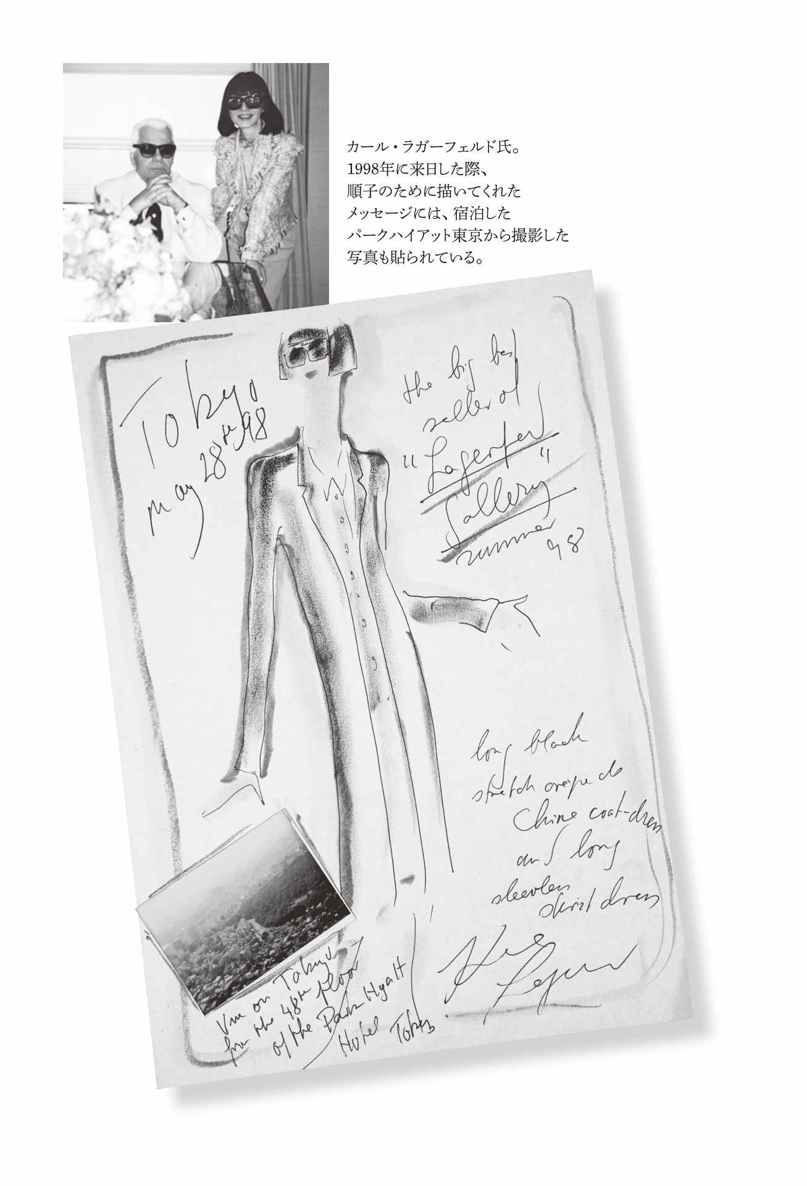 カール・ラガーフェルド氏。
1998年に来日した際、
順子のために描いてくれた
メッセージには、宿泊した
パークハイアット東京から撮影した
写真も貼られている。
Tokyo
May 28th 98
the big best
seller of
"Lagerfeld
Gallery"
summer
98
long black
stretch crêpe de
Chine coat-dress
and long
sleeveless
shirt dress
View on Tokyo
from the 48th floor
of the Park Hyatt
Hotel Tokyo